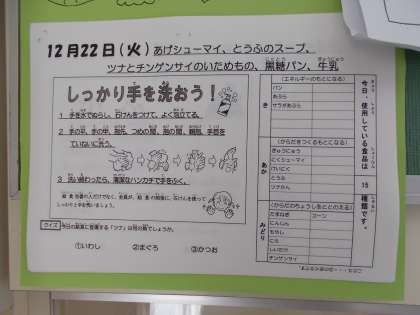 12月22日(火) あげシューマイ、とうふのスープ、
ツナとチンゲンサイのいためもの、黒糖パン、牛乳
しっかり手を洗おう!
1 手を水でぬらし、石けんをつけて、よく泡立てる。
2 手の平、手の甲、指先、つめの間、指の間、親指、手首を
ていねいに洗う。
3 洗い終わったら、清潔なハンカチで手をふく。
給食当番の人だけでなく、全員が、給食の時間に、石けんを使って
しっかりと手を洗いましょう。
クイズ 今日の給食に登場する「ツナ」は何の魚でしょうか。
①いわし ②まぐろ ③かつお
今日、使用している食品は 15 種類です。
き
(エネルギーのもとになる)
パン
あぶら
サラダあぶら
あか
(からだをつくるもとになる)
ぎゅうにゅう
にくシューマイ
けいにく
とうふ
ツナかん
みどり
(からだのちょうしをととのえる)
たまねぎ コーン
にんじん
もやし
にら
しいたけ
チンゲンサイ